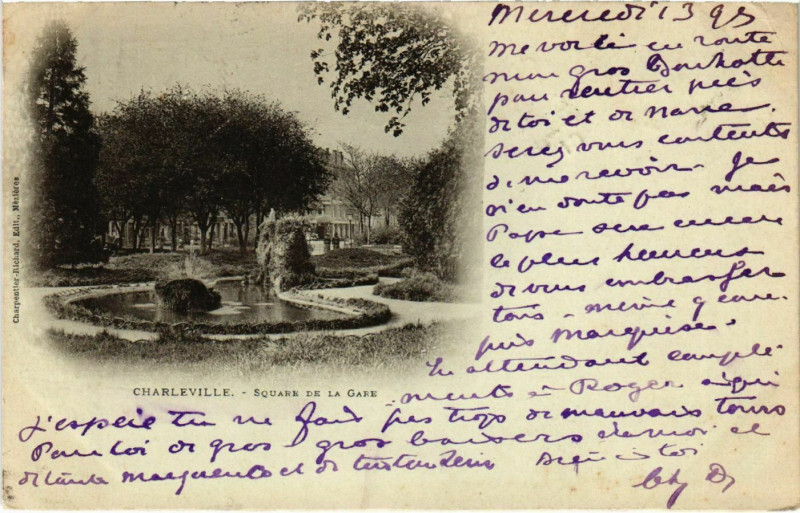 Mercredi 13 9bre
Me voici en route
mon gros
pour rentrer près
de toi et de Nane.
Serez vous contents
de me revoir. Je
n'en doute pas mais
Papa sera encore
le plus heureux
de vous embrasser
tous - même
puis Marquise.
En attendant compli-
ments à Roger à qui
j'espère tu ne fais pas trop de mauvais tours
Pour toi de gros - gros baisers de moi et
de tante Marguerite et de tonton
à toi
Charpentier-Richard, Edit., Mézières
CHARLEVILLE. - SQUARE DE LA GARE